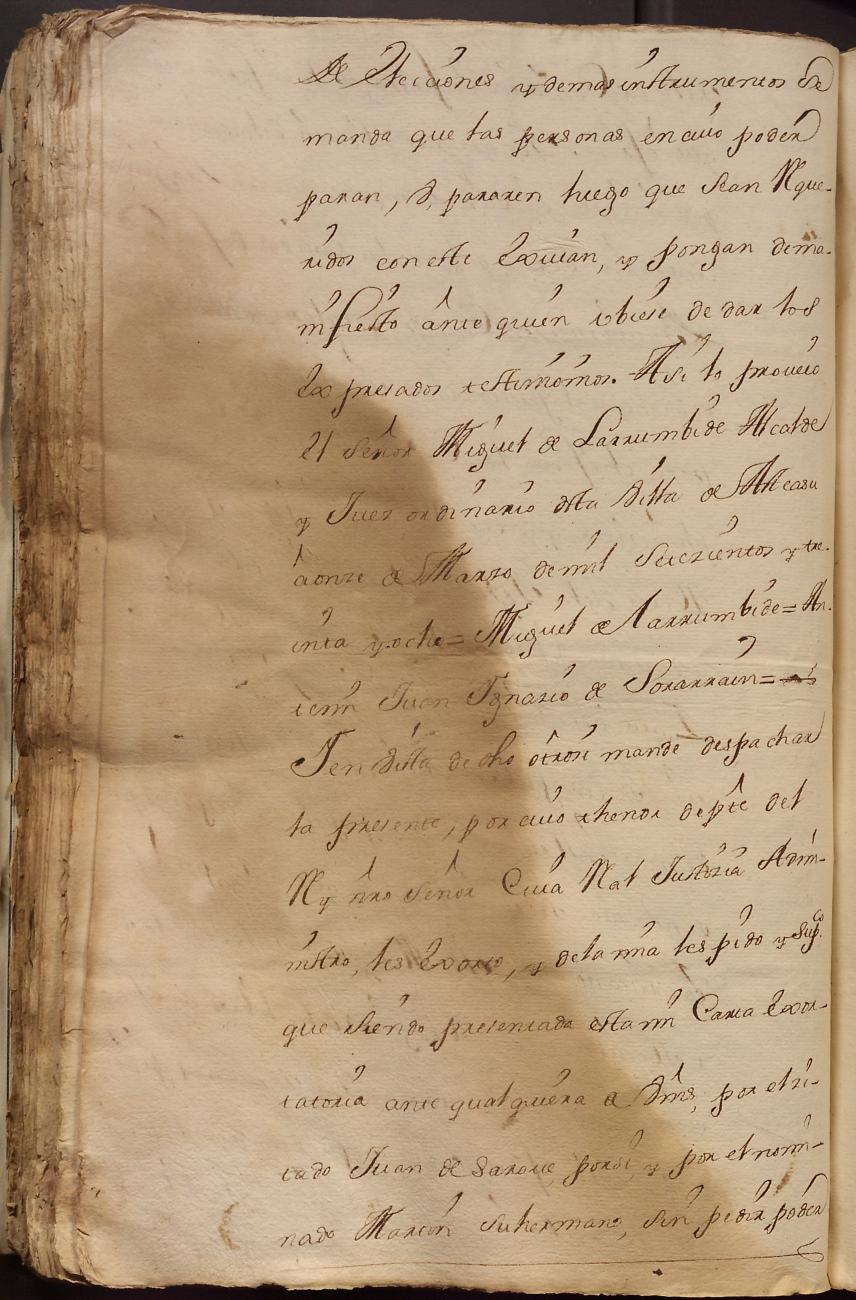 de Elecciones y demas instrumentos de
manda que las personas en cuio poder
paran, ô, pararen luego que sean Reque-
ridos con este Exivian, y pongan de ma-
nifiesto ânte quien ubiese de dar los
Expresados testimonios. Asi lo proveio
el señor Miguel de Larrumbide Alcalde
y Juez ordinario desta Villa de Alteasu
âonze de Marzo de mil setezientos y tre-
inta y ocho = Miguel de Larrumbide = An-
temi Juan Ignazio de Sorarrain =
Y en vista de dho otrosi mande despachar
la presente, por cuio thenor de pte del
Rey nro señor Cuia Real Justizia Admi-
nistro, les Exorto, y de la mia les pido y supco
que siendo presentada esta mi Carta Exor-
tatoria ante qualquiera de Vms, por el zi-
tado Juan de Sarove por si, y por el nomi-
nado Martin su hermano, sin pedir poder